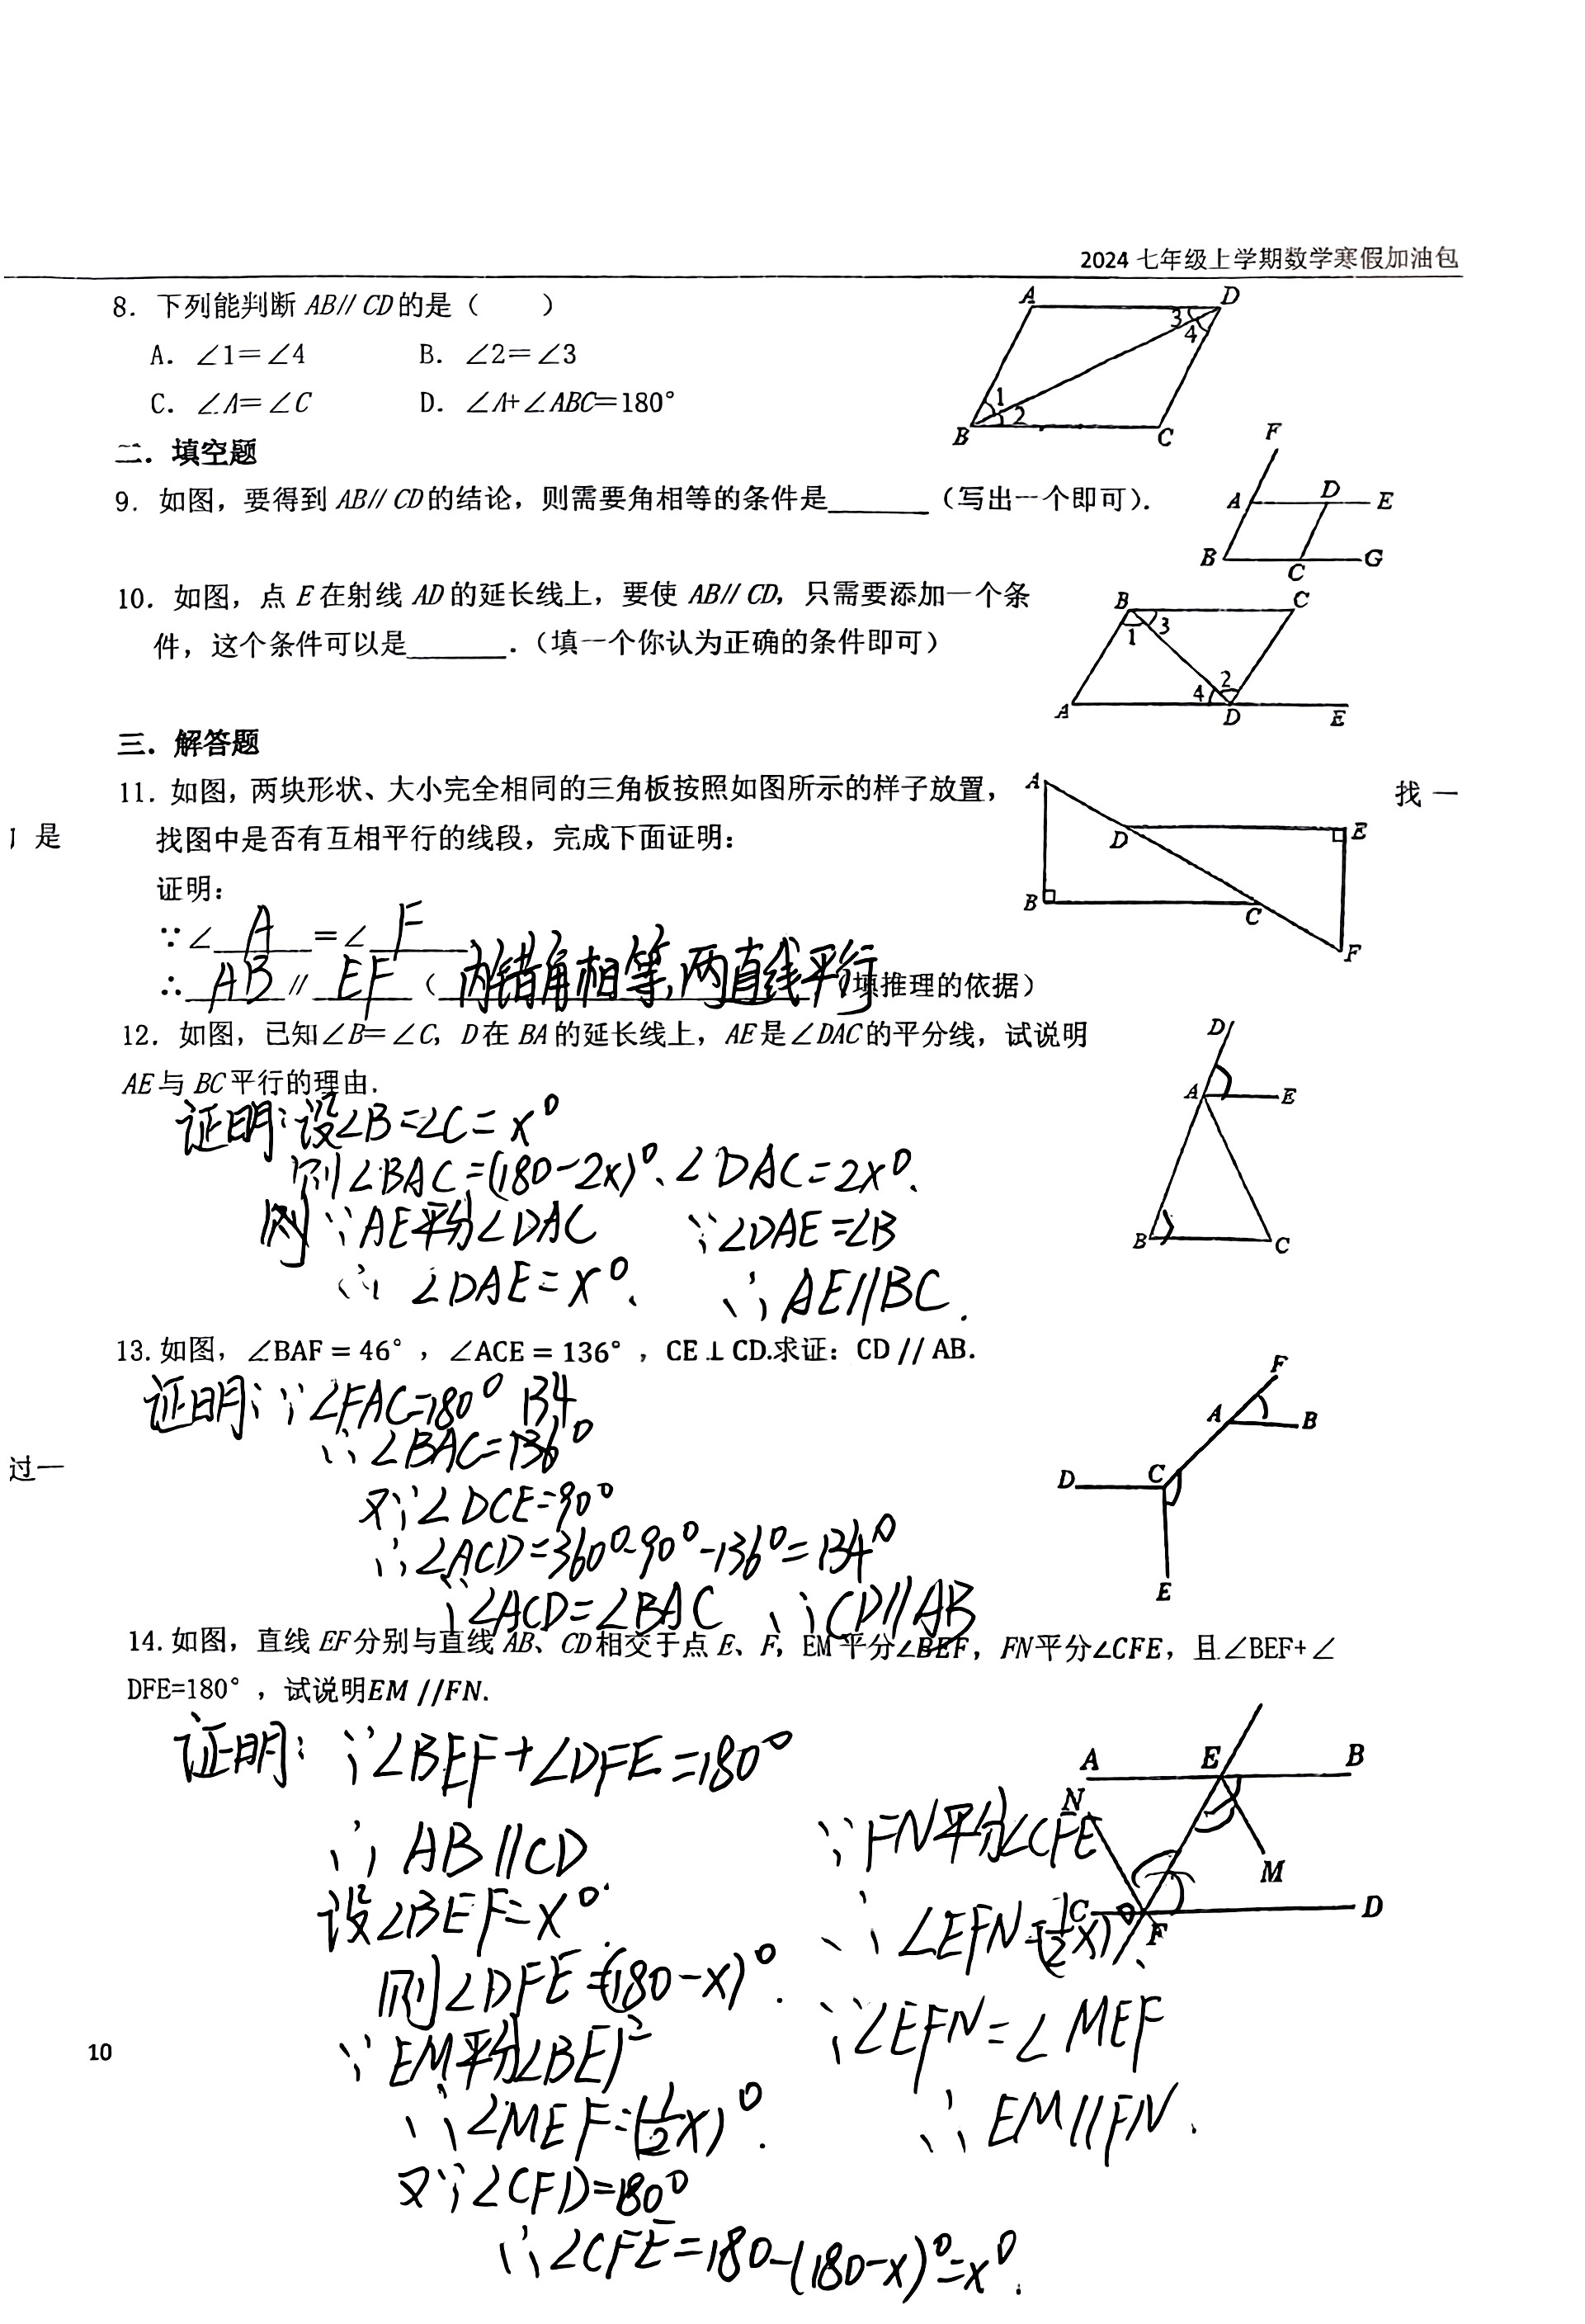 2024 七年级上学期数学寒假加油包
8. 下列能判断 AB// CD的是（　　）
A. ∠1=∠4　　B. ∠2=∠3
C. ∠A=∠C　　D. ∠A+∠ABC=180°
A D 3 4 1 2 B C
二．填空题
9. 如图，要得到 AB// CD的结论，则需要角相等的条件是______（写出一个即可）.
F A D E B C G
10. 如图，点 E 在射线 AD 的延长线上，要使 AB// CD，只需要添加一个条
件，这个条件可以是______．（填一个你认为正确的条件即可）
B C 1 3 4 2 A D E
三．解答题
11. 如图，两块形状、大小完全相同的三角板按照如图所示的样子放置，　找 一
是　找图中是否有互相平行的线段，完成下面证明：
证明：
∵∠ A =∠ F
∴ AB // EF （ 内错角相等,两直线平行 （填推理的依据）
A D E B C F
12. 如图，已知∠B=∠C，D在 BA 的延长线上，AE是∠DAC的平分线，试说明
AE与 BC平行的理由.
证明:设∠B=∠C=x°
则∠BAC=(180-2x)°、∠DAC=2x°.
∵AE平分∠DAC　∵∠DAE=∠B
∴ ∠DAE=x°、　∴AE//BC.
D A E B C
13. 如图，∠BAF = 46° ，∠ACE = 136° ，CE ⊥ CD.求证：CD // AB.
证明:∵∠FAC=180° 134
∴∠BAC=136°
过一
又∵∠DCE=90°
∴∠ACD=360°-90°-136°=134°
∵∠ACD=∠BAC 、∵CD//AB
F A B D C E
14. 如图，直线 EF分别与直线 AB、CD相交于点 E、F，EM 平分∠BEF，FN平分∠CFE，且∠BEF+∠
DFE=180° ，试说明EM //FN.
证明：∵∠BEF+∠DFE=180°
∴ AB//CD
设∠BEF=x°.
则∠DFE=(180-x)°.
∵EM平分∠BEF
∴∠MEF=(1/2x)°.
又∵∠CFD=180°
∴∠CFE=180-(180-x)°=x°.
∵FN平分∠CFE
∴∠EFN=(1/2x)°、
∵∠EFN=∠MEF
∴EM//FN.
A E B N M C F D
10